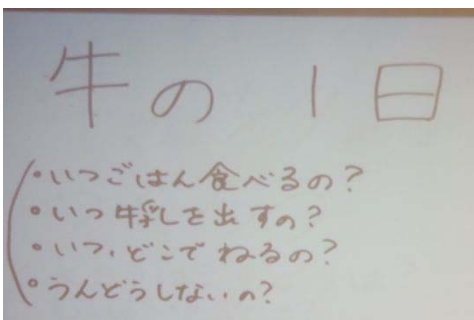 牛の1日
・いつごはん食べるの?
・いつ牛乳を出すの?
・いつ、どこでねるの?
・うんどうしないの?